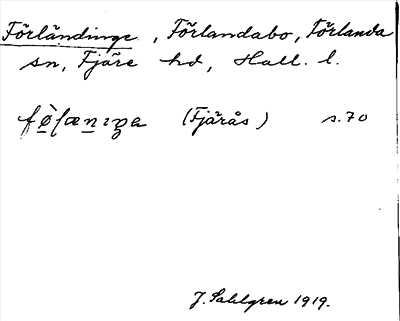 Förländinge, Förlandabo, Förlanda
sn, Fjäre hd, Hall. l.
(Fjärås) s. 70
J. Sahlgren 1919.